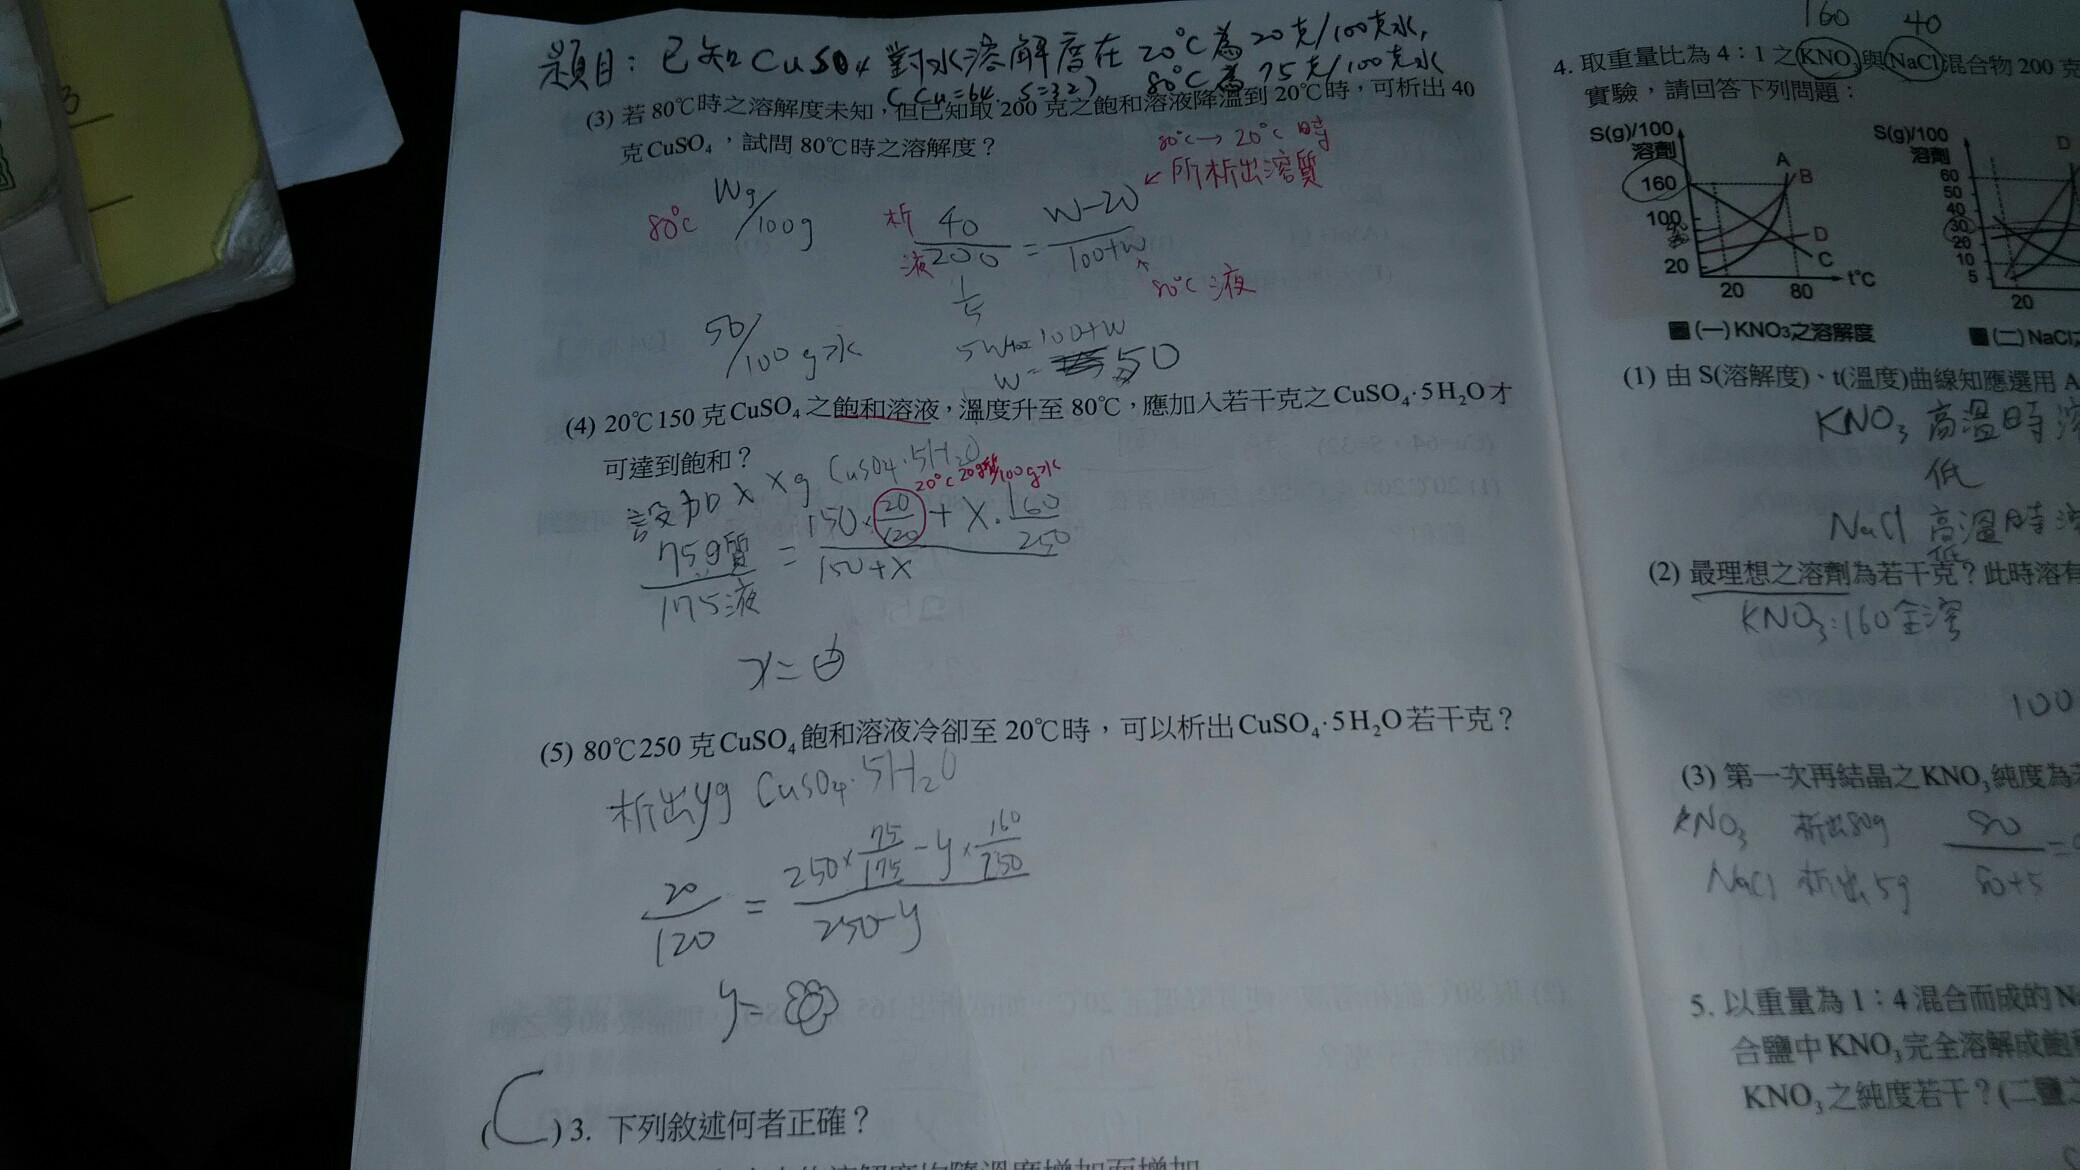 題目：已知CuSO4對水溶解度在20°C為20克/100克水,
(Cu=64, S=32) 80°C為75克/100克水
(3) 若80℃時之溶解度未知，但已知取200克之飽和溶液降溫到20℃時，可析出40
克CuSO4，試問80℃時之溶解度？
80°C→20°C時
←所析出溶質
80°C Wg/100g
析 40 / 液 200 = W-20 / 100+W
1/5
80°C液
50/100g水
W= 50
(4) 20℃150克CuSO4之飽和溶液，溫度升至80℃，應加入若干克之CuSO4·5H2O才
可達到飽和？
設加入 xg CuSO4·5H2O
20°C 20g質/100g水
75g質/175液 = (150×20/120 + x·160/250)/(150+x)
x=
(5) 80℃250克CuSO4飽和溶液冷卻至20℃時，可以析出CuSO4·5H2O若干克？
析出yg CuSO4·5H2O
20/120 = (250×75/175 - y×160/250)/(250-y)
y=
(C) 3. 下列敘述何者正確？
160 40
4. 取重量比為4：1之KNO3與NaCl混合物200克
實驗，請回答下列問題：
S(g)/100
溶劑
160
100
20
A
B
D
C
20 80 t℃
圖(一)KNO3之溶解度
S(g)/100
溶劑
60
50
40
30
20
10
5
D
20
圖(二)NaCl之
(1) 由S(溶解度)、t(溫度)曲線知應選用A
KNO3 高溫時溶
低
NaCl 高溫時溶
低
(2) 最理想之溶劑為若干克？此時溶有
KNO3：160全溶
100
(3) 第一次再結晶之KNO3純度為若
KNO3 析出80g 80/80+5 =
NaCl 析出5g
5. 以重量為1：4混合而成的Na
合鹽中KNO3完全溶解成飽
KNO3之純度若干？(二鹽之